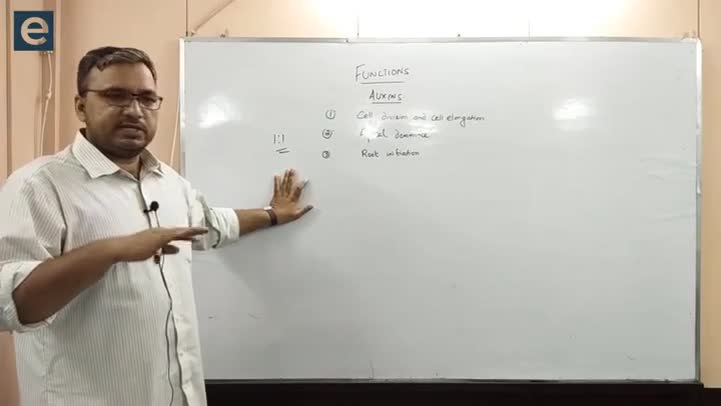 e
FUNCTIONS
AUXINS
① Cell division and cell elongation
② Apical dominance
③ Root initiation
1:1